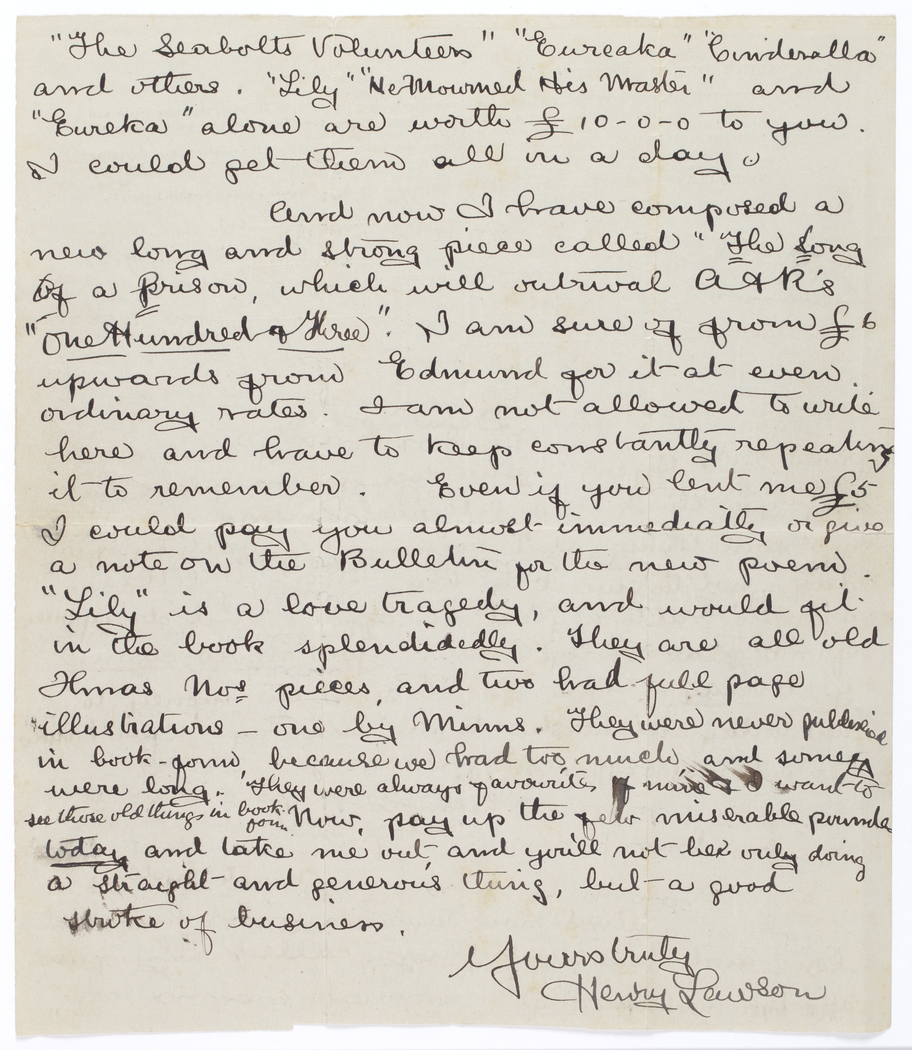 "The Seabolts Volunteers" "Eureaka" "Cinderalla"
and others. "Lily" "He Mourned His Master" and
"Eureka" alone are worth £10-0-0 to you.
I could get them all in a day.
And now I have composed a
new long and strong piece called "The Song
Of a Prison, which will outrival A & R's
"One Hundred & Three". I am sure of from £6
upwards from Edmund for it at even
ordinary rates. I am not allowed to write
here and have to keep constantly repeating
it to remember. Even if you lent me £5
I could pay you almost immediatly or give
a note on the Bulletin for the new poem.
"Lily" is a love tragedy, and would fit
in the book splendidedly. They are all old
Xmas Nos pieces, and two had full page
illustrations – one by Minns. They were never published
in book-form, because we had too much and some
were long. They were always favourites of mine & I want to
see those old things in book-
form. Now, pay up the few miserable pounds
today and take me out, and you'll not be only doing
a straight and generous thing, but a good
stroke of business.
Yours truly
Henry Lawson